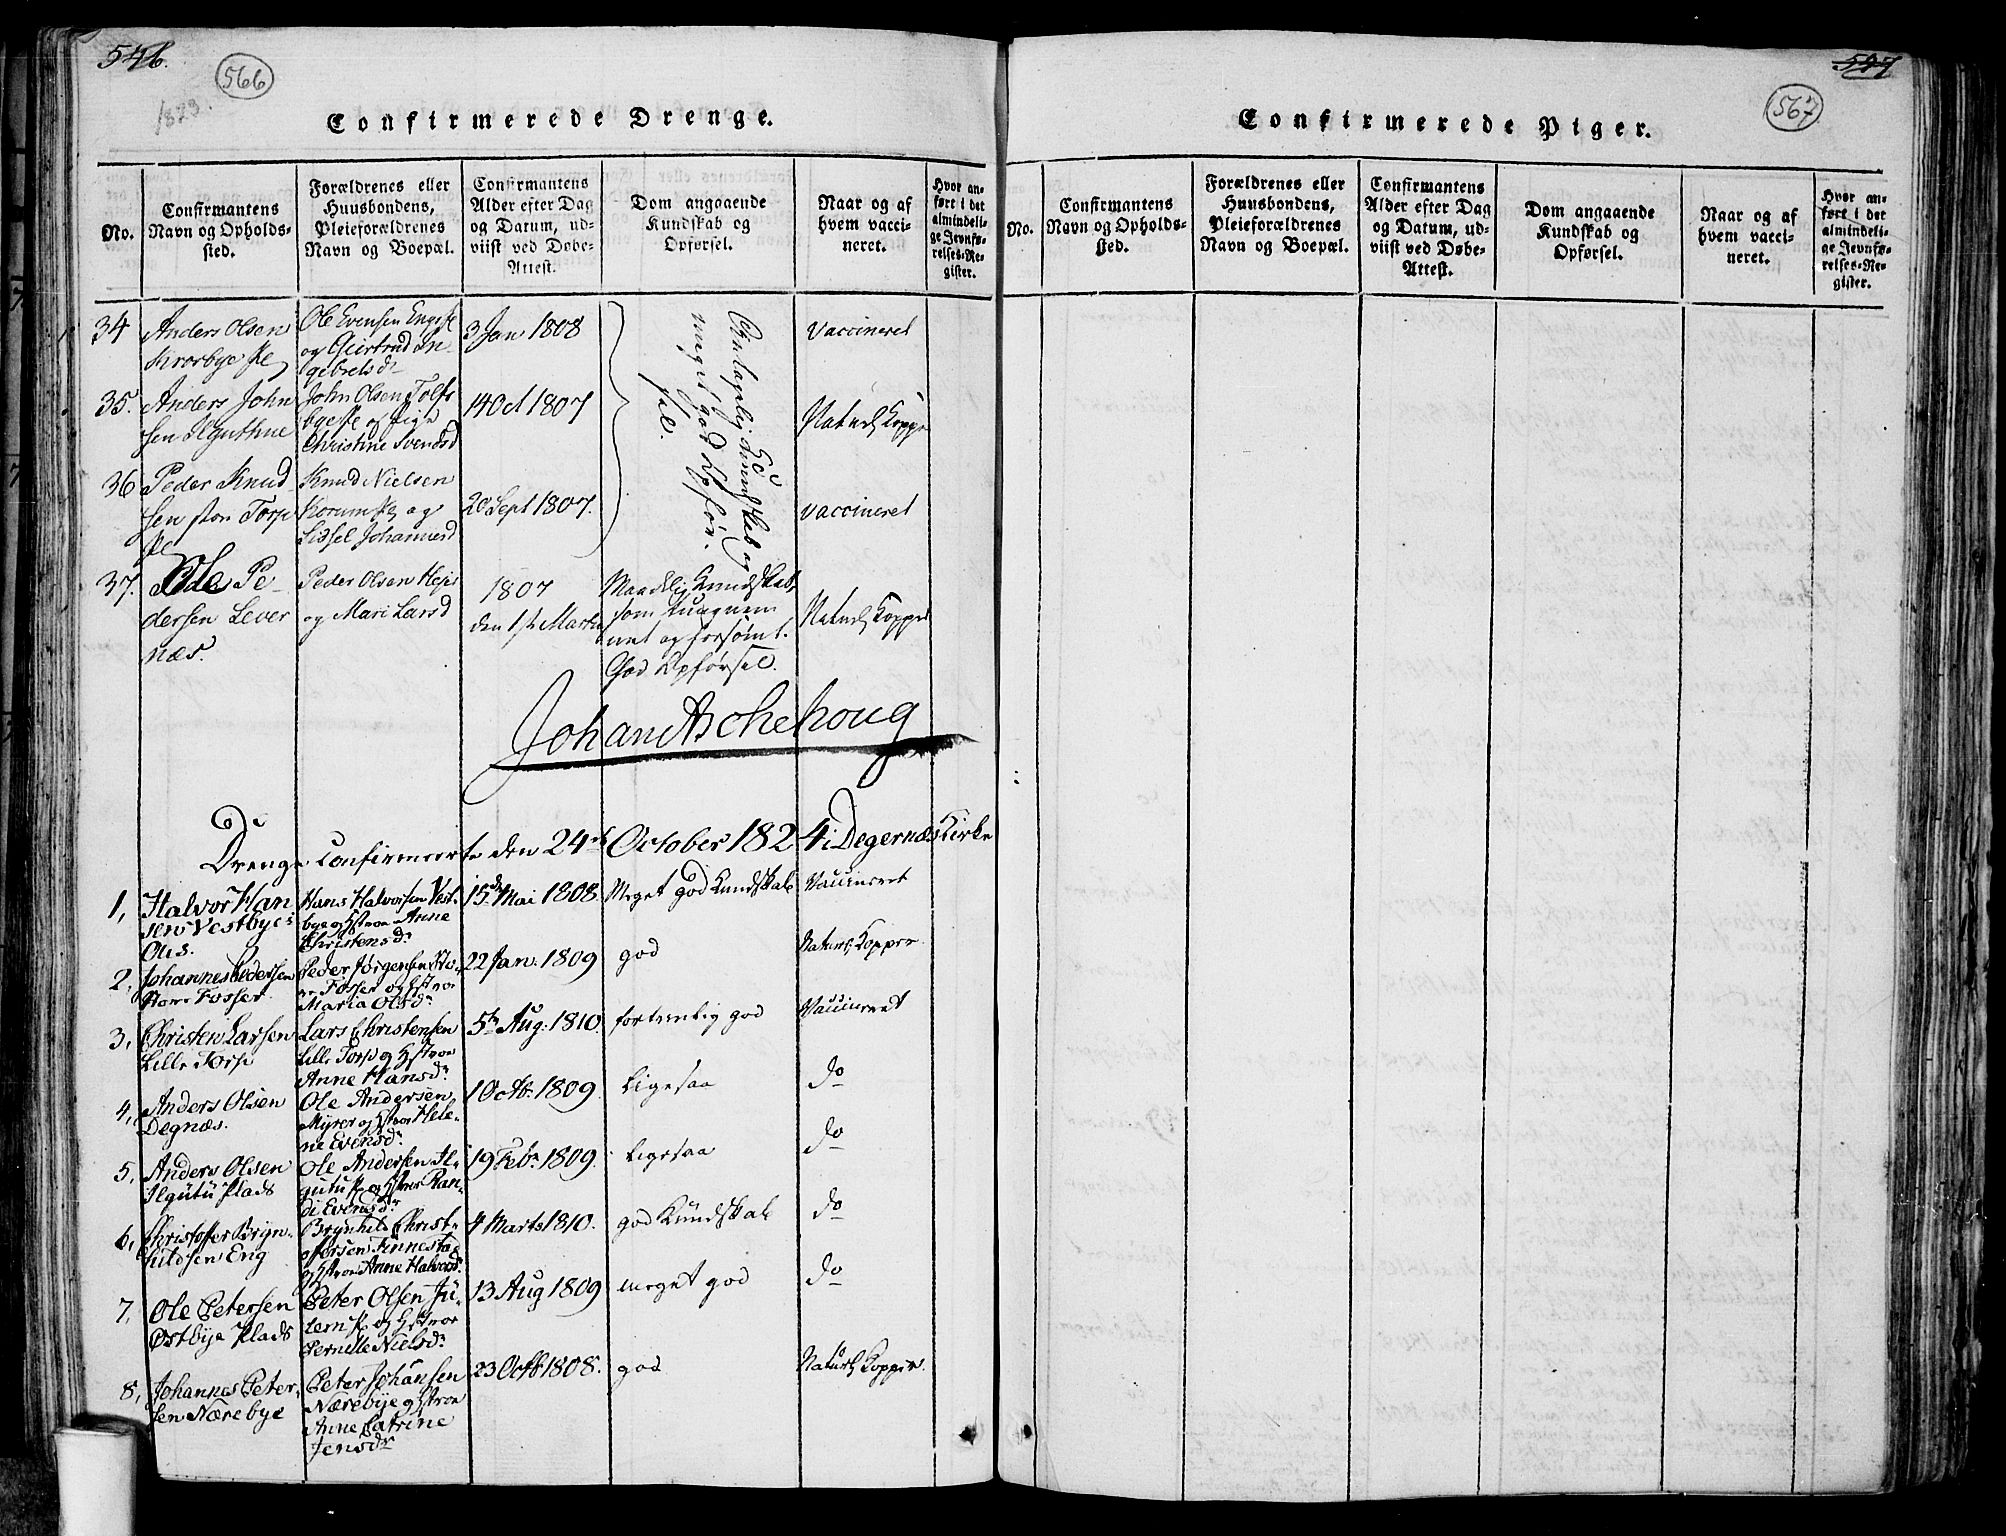 546.
566
1823.
Confirmerede Drenge.
No.
Confirmantens
Navn og Opholds-
sted.
Forældrenes eller
Huusbondens,
Pleieforældrenes
Navn og Boepæl.
Confirmantens
Alder efter Dag
og Datum, ud-
viist ved Døbe-
Attest.
Dom angaaende
Kundskab og
Opførsel.
Naar og af
hvem vacci-
neret.
Hvor an-
ført i det
almindeli-
ge Jevnfø-
relses-Re-
gister.
34
Anders Olsen
Ole Evensen
og Giertrud In-
gebretsd
3 Jan 1808
vaccineret
35.
Anders John
sen
John Olsen
og Pige
Christine Svendsd
14 Oct 1807
Naturl Kopper
36
Peder Knud
sen Torp
Pl
Knud Nielsen
og
Sissel Johannesd
20 Sept 1807.
vaccineret
Kundskab og
meget god Opfør.
sel.
37.
Ole Pe
dersen Lever
næs.
Peder Olsen
og Mari Larsd
1807
den Marts
Maadelig Kundskab,
som
met og forsømt.
God Opførsel.
Naturl Kopper
Johan Aschehoug
Drenge confirmeerte den 24de October 1824 i Degernæs Kirke
1,
Halvor Han
sen Vestbye
Hans Halvorsen Vest-
bye og Hstroe Anne
Christensdr
15de Mai 1808.
Meget god Kundskab
Vaccineret
2,
Johannes Pedersen
Store Fosser
Peder Jørgensen Sto-
re Fosser og Hstroe
Maria Olsdr
22 Jan. 1809
god
Naturl Kopper.
3,
Christen Larsen
Lille Torp
Lars Christensen
Lille Torp og Hstroe
Anne Hansdr
5te Aug. 1810.
fortrinlig god
Vaccineret
4,
Anders Olsen
Degnæs.
Ole Andersen
Myrer og Hstroe Hele-
ne Evensdr
1 Octb. 1809.
Ligesaa
do
5,
Anders Olsen
Ilgutu Plads
Ole Andersen Il-
gutu Pl og Hstroe Ran-
di Evensdr
19 Febr 1809.
Ligesaa
do
6,
Christoffer Bryn-
hildsen Eng
Brynhil Christ-
offersen Finnestad
og Hstroe Anne Halvorsd.
4 Marts 1810.
god Kundskab
do
7,
Ole Petersen
Østbye Plads
Peter Olsen Ju-
lern Pl og Hstroe
Pernille Nielsdr
13 Aug 1809
meget god
do
8,
Johannes Peter-
sen Nærebye
Peter Johansen
Nærebye og Hstroe
Anne Catrine
Jensdr
23 Octb 1808.
god
Naturl Kopper.
547
567
Confirmerede Piger.
No.
Confirmantens
Navn og Opholds-
sted.
Forældrenes eller
Huusbondens,
Pleieforældrenes
Navn og Boepæl.
Confirmantens
Alder efter Dag
og Datum, ud-
viist ved Døbe-
Attest.
Dom angaaende
Kundskab og
Opførsel.
Naar og af
hvem vacci-
neret.
Hvor an-
ført i det
almindeli-
ge Jevnfø-
relses-Re-
gister.